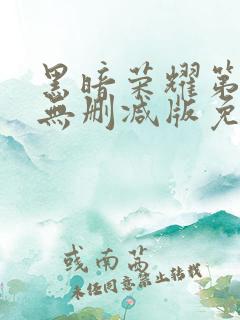 黑暗荣耀第
無删减版免
或南茜
未经同意禁止转载